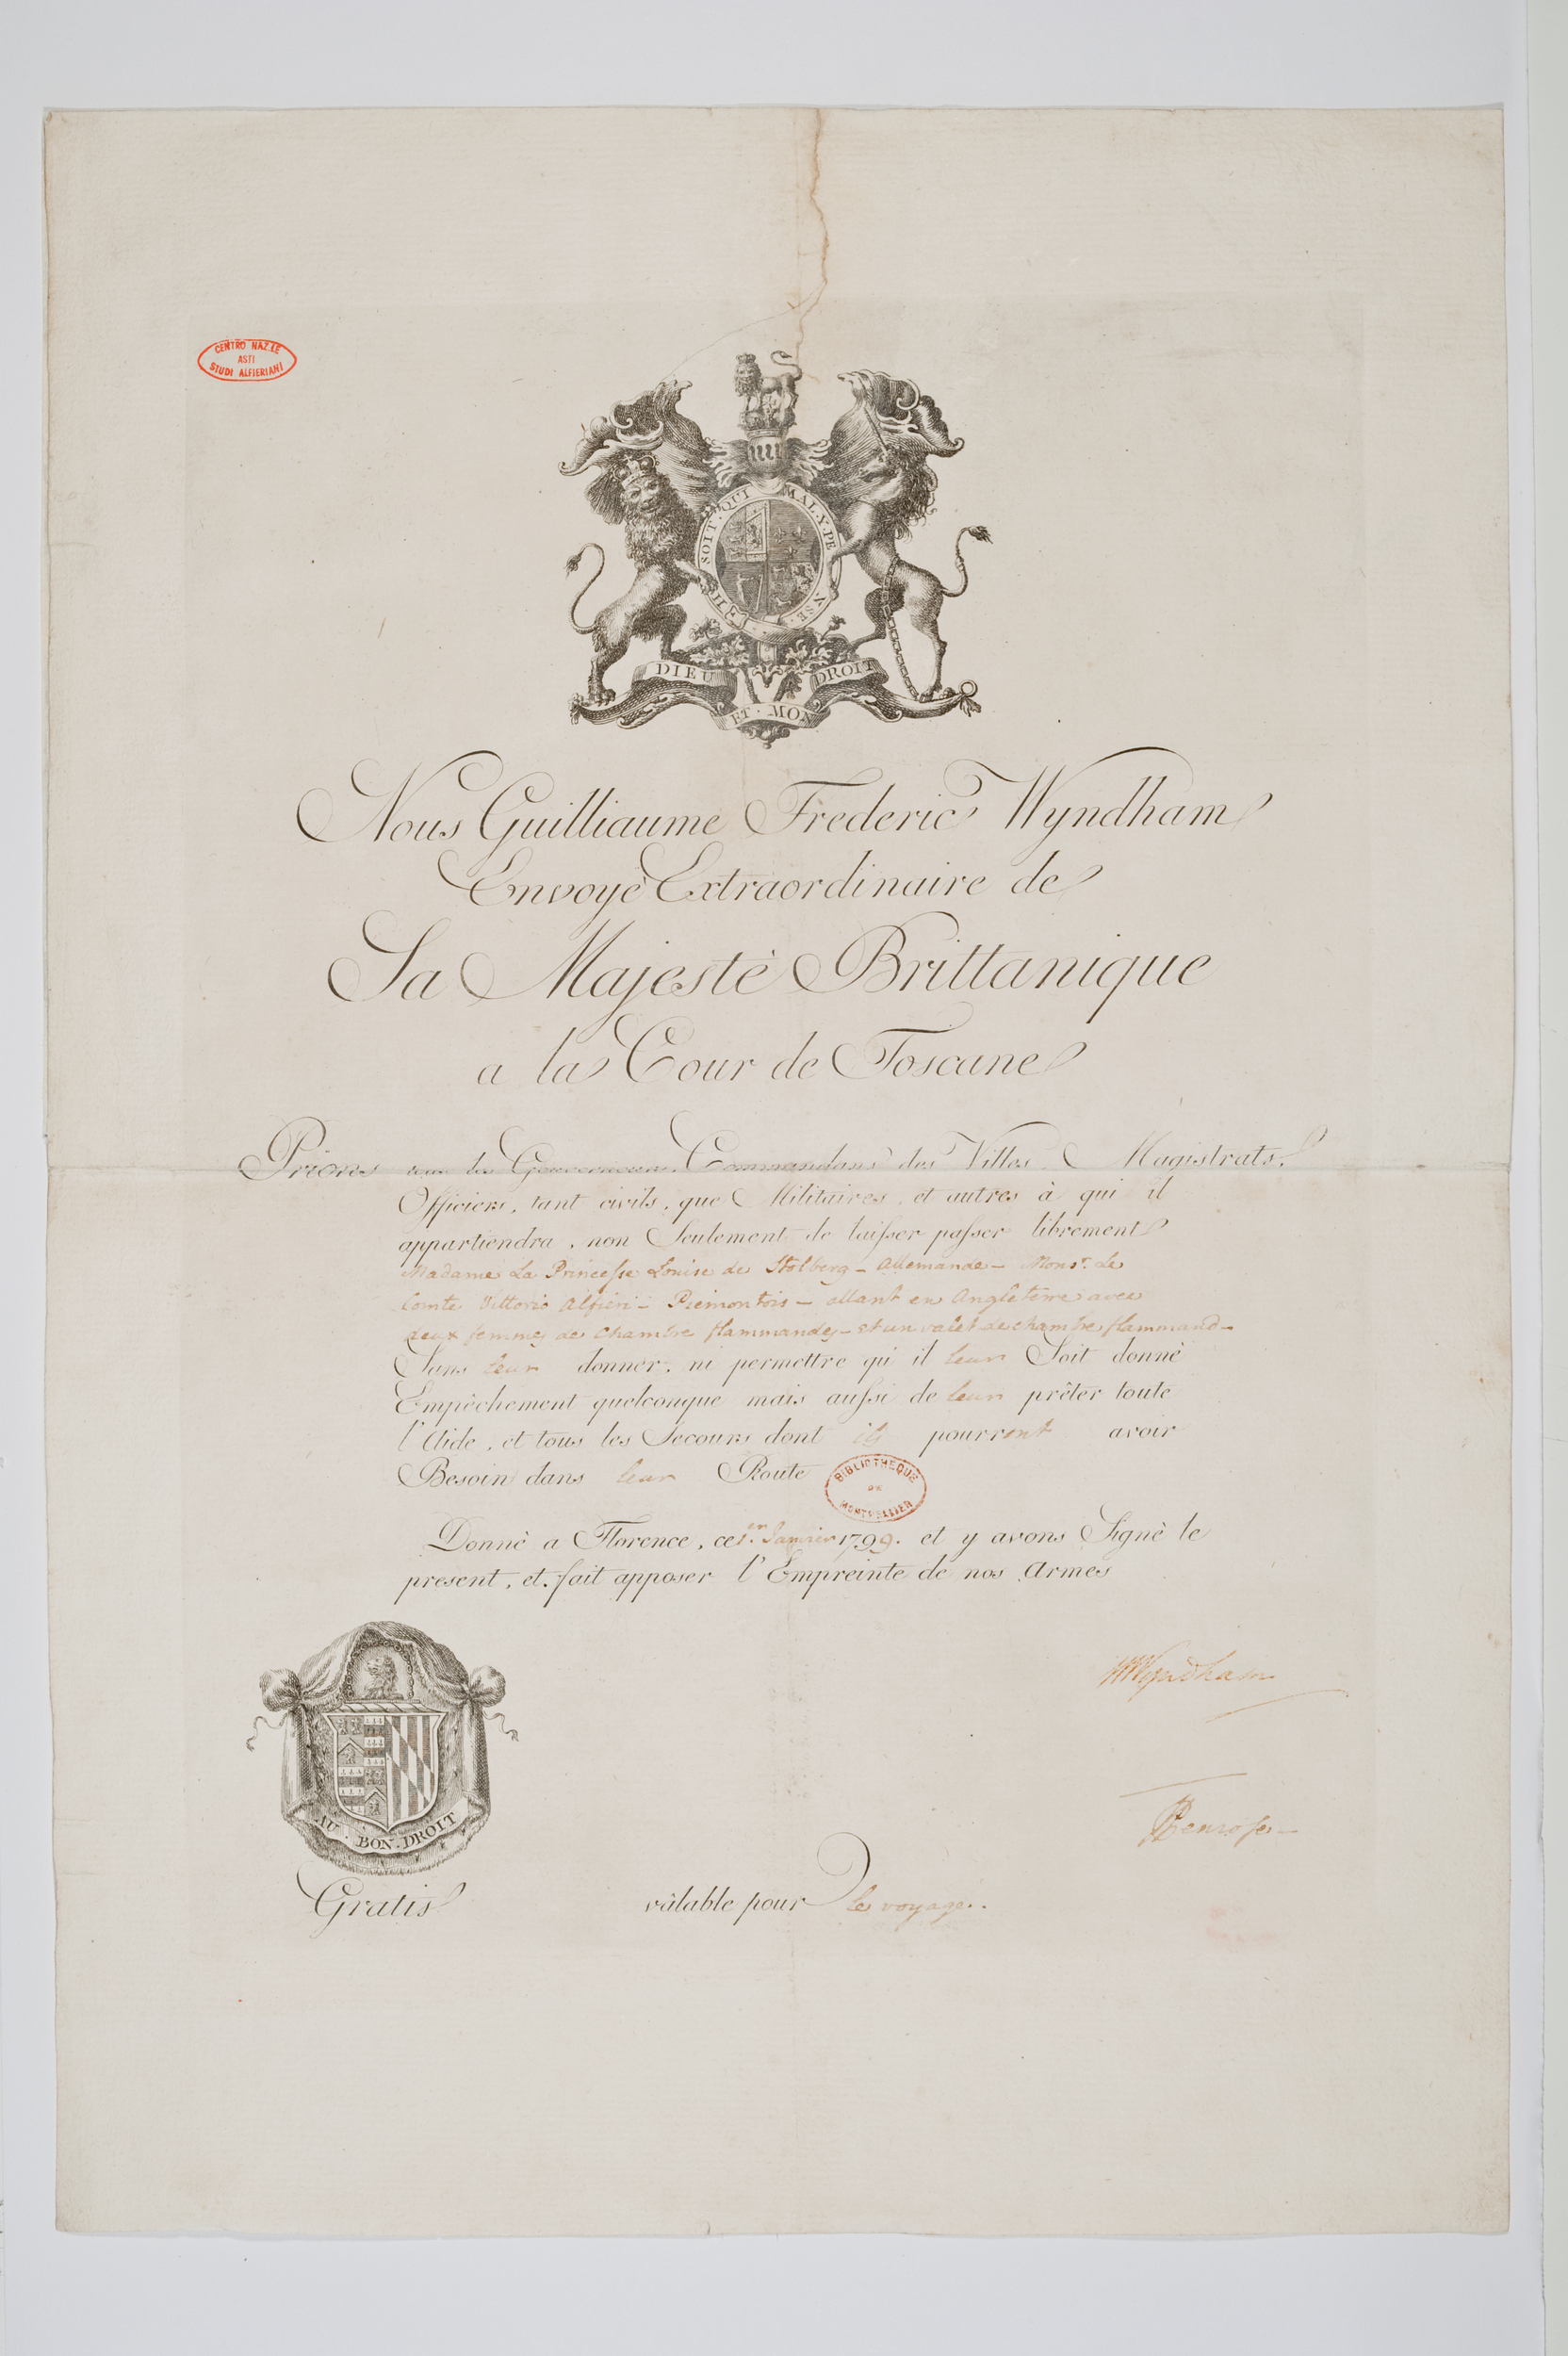 CENTRO NAZ.LE
ASTI
STUDI ALFIERIANI
SOIT · QUI MAL · Y · PE
DIEU ET · MON DROIT
Nous Guilliaume Frederic Wyndham
Envoyè Extraordinaire de
Sa Majestè Brittanique
a la Cour de Toscane
Prions tous les Gouverneurs, Commandans des Villes, Magistrats,
Officiers, tant civils, que Militaires, et autres à qui il
appartiendra, non Seulement de laisser passer librement
Madame La Princesse Louise de Stolberg - Allemande - Monsr. Le
Comte Vittorio Alfieri - Piemontois - allant en Angleterre avec
deux femmes de chambre flammandes - et un valet de chambre flammand -
Sans leur donner, ni permettre qu'il leur Soit donnè
Empèchement quelconque mais aussi de leur prêter toute
l'Aide, et tous les Secours dont ils pourront avoir
Besoin dans leur Route
BIBLIOTHEQUE
DE
MONTPELLIER
Donnè a Florence, ce 1.er Janvier 1799. et y avons Signè le
present, et fait apposer l'Empreinte de nos Armes
WWyndham
Penrose
AU · BON · DROIT
Gratis
vâlable pour le voyage.